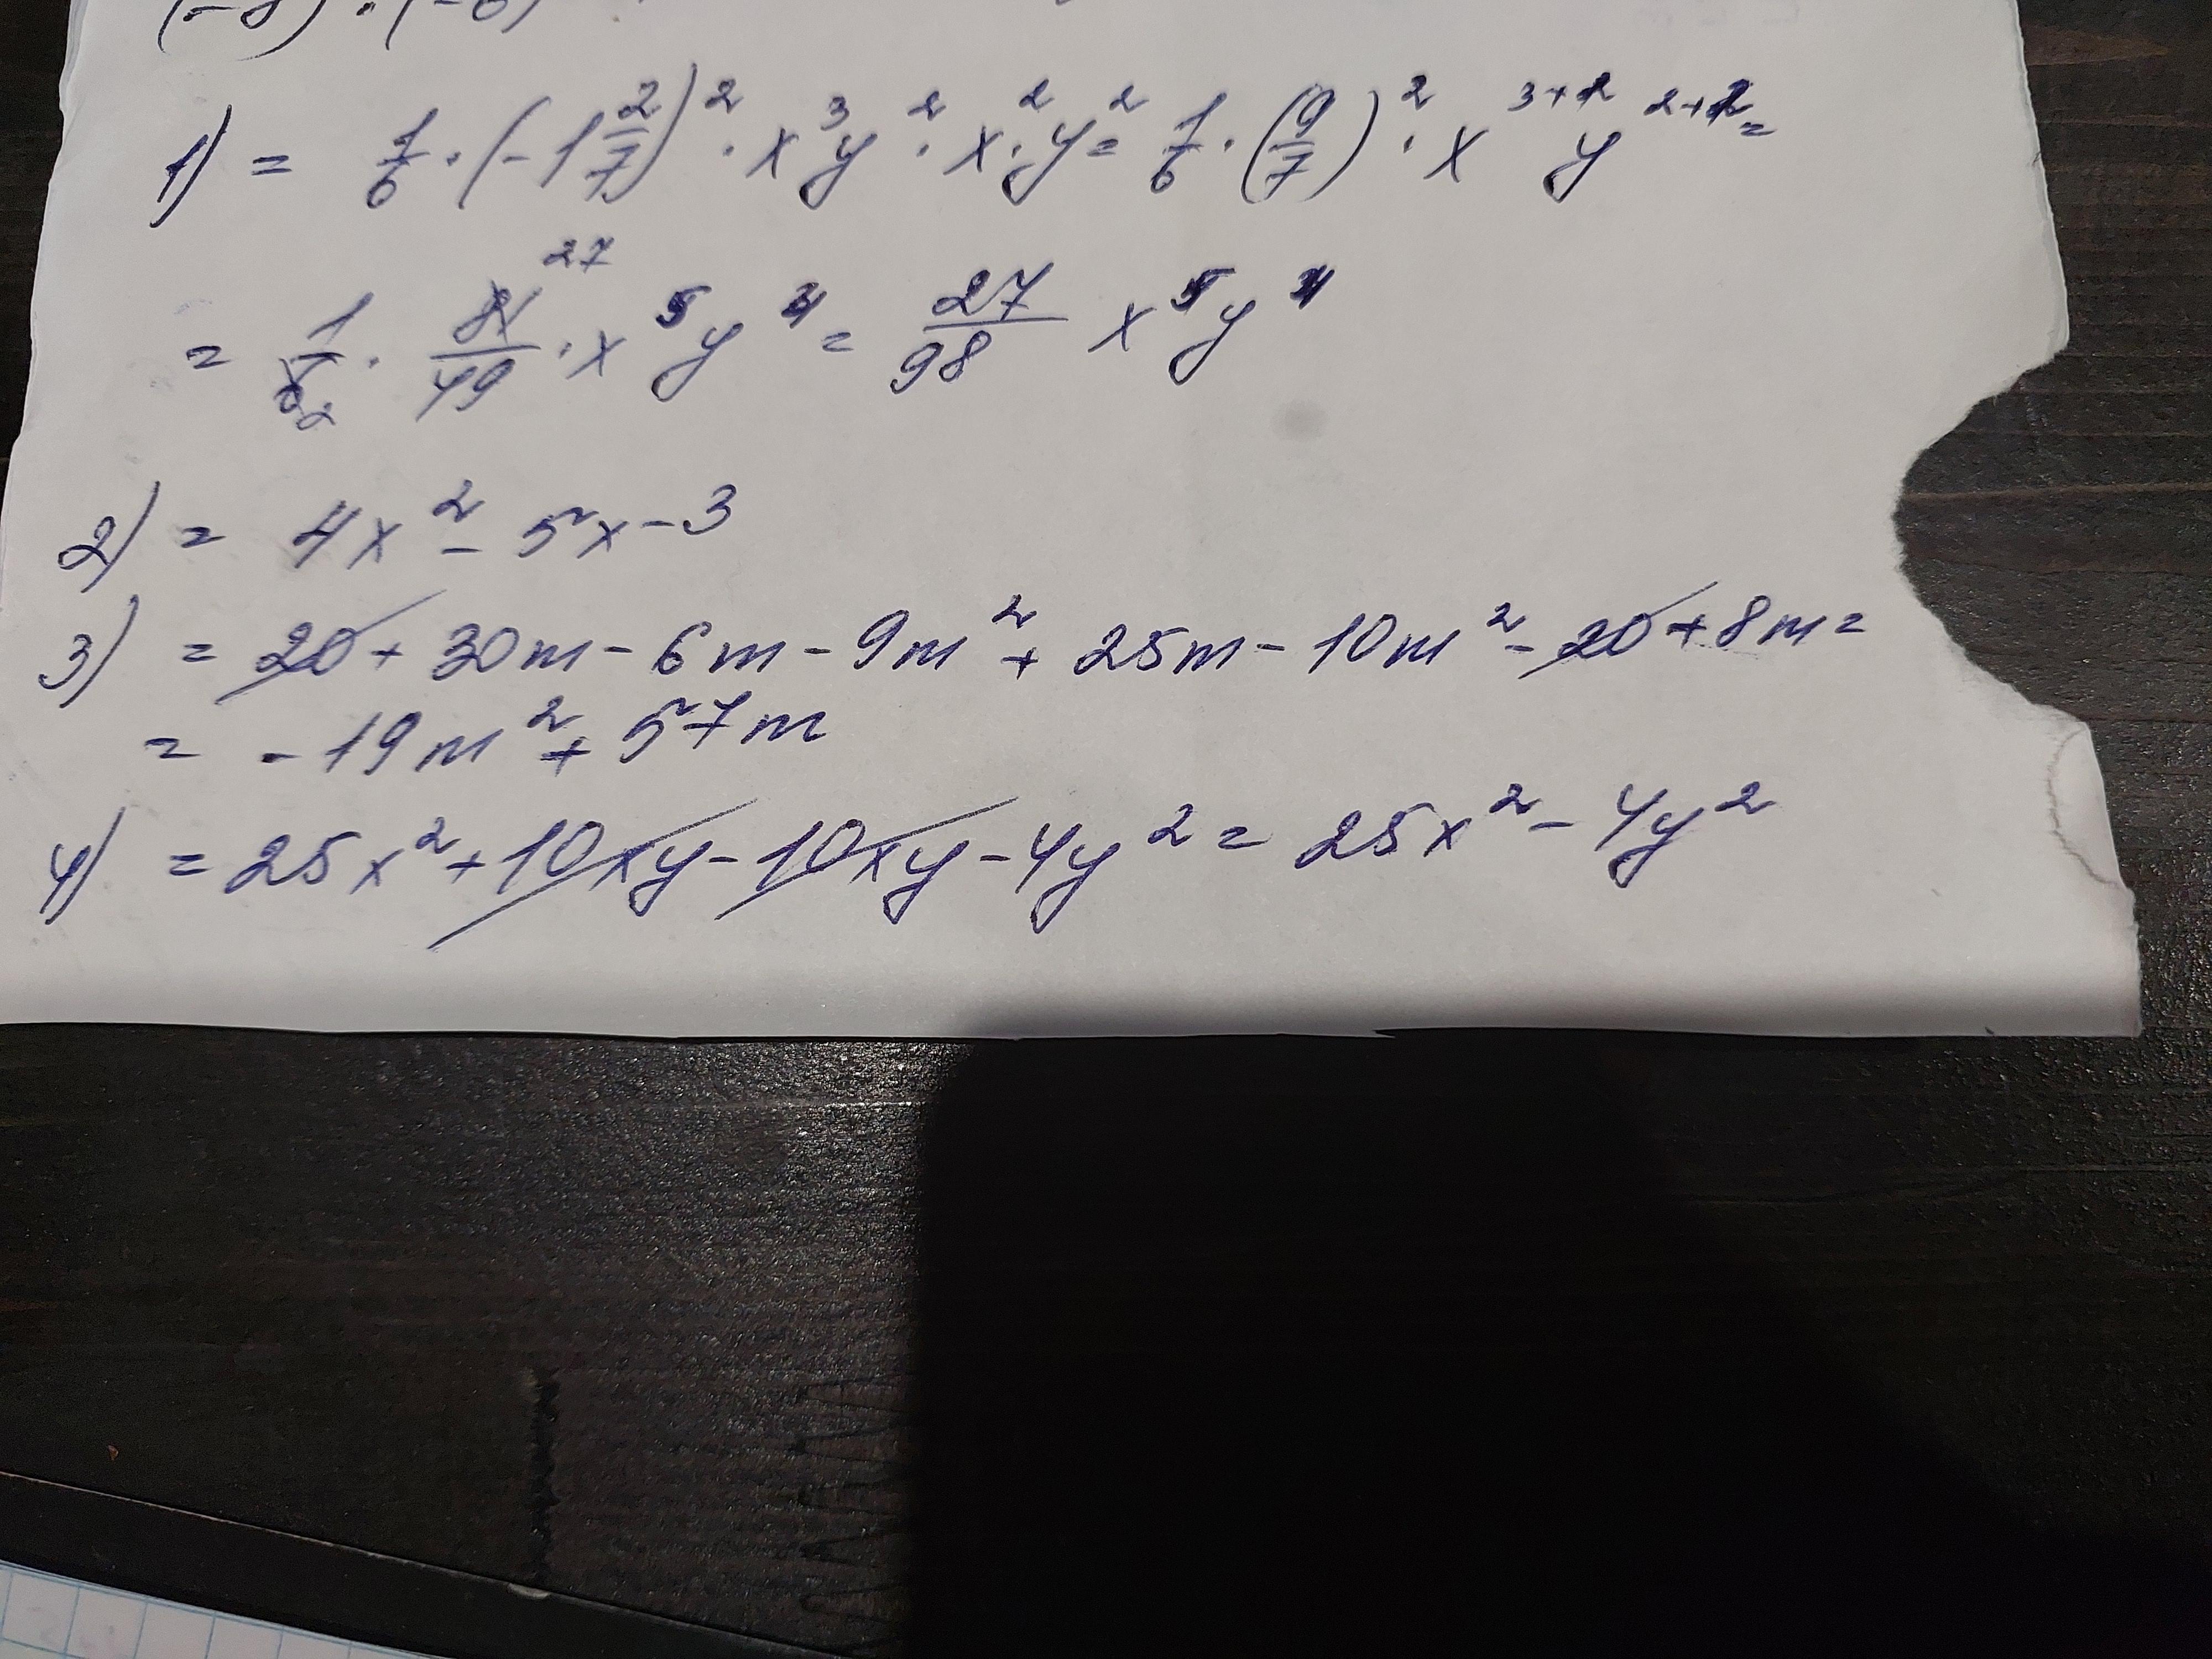 (-8) · (-6)
1) = 1/6 · (-1 2/7)² · x³y² · x² · y² = 1/6 · (9/7)² · x³⁺² y²⁺² =
= 1/6 2 · 81/49 27 · x⁵y⁴ = 27/98 x⁵y⁴
2) = 4x² - 5x - 3
3) = 20 + 30m - 6m - 9m² + 25m - 10m² - 20 + 8m =
= - 19m² + 57m
4) = 25x² + 10xy - 10xy - 4y² = 25x² - 4y²